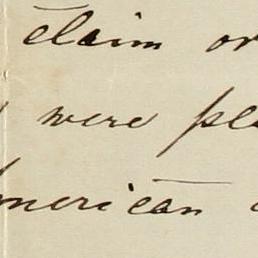 claim or
were ple
American